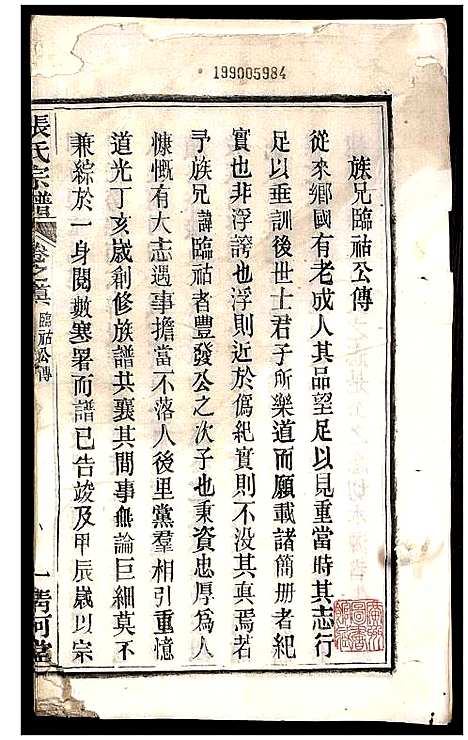 199005984
族兄臨祜公傳
從來鄉國有老成人其品望足以見重當時其志行
足以垂訓後世士君子所樂道而願載諸簡册者紀
實也非浮誇也浮則近於僞紀實則不没其真焉若
予族兄諱臨祜者豐發公之次子也秉資忠厚爲人
慷慨有大志遇事擔當不落人後里黨羣相引重憶
道光丁亥歲創修族譜共襄其間事無論巨細莫不
兼綜於一身閱數寒署而譜已告竣及甲辰歲以宗
張氏宗譜
卷之首
臨祜公傳
一
清河堂